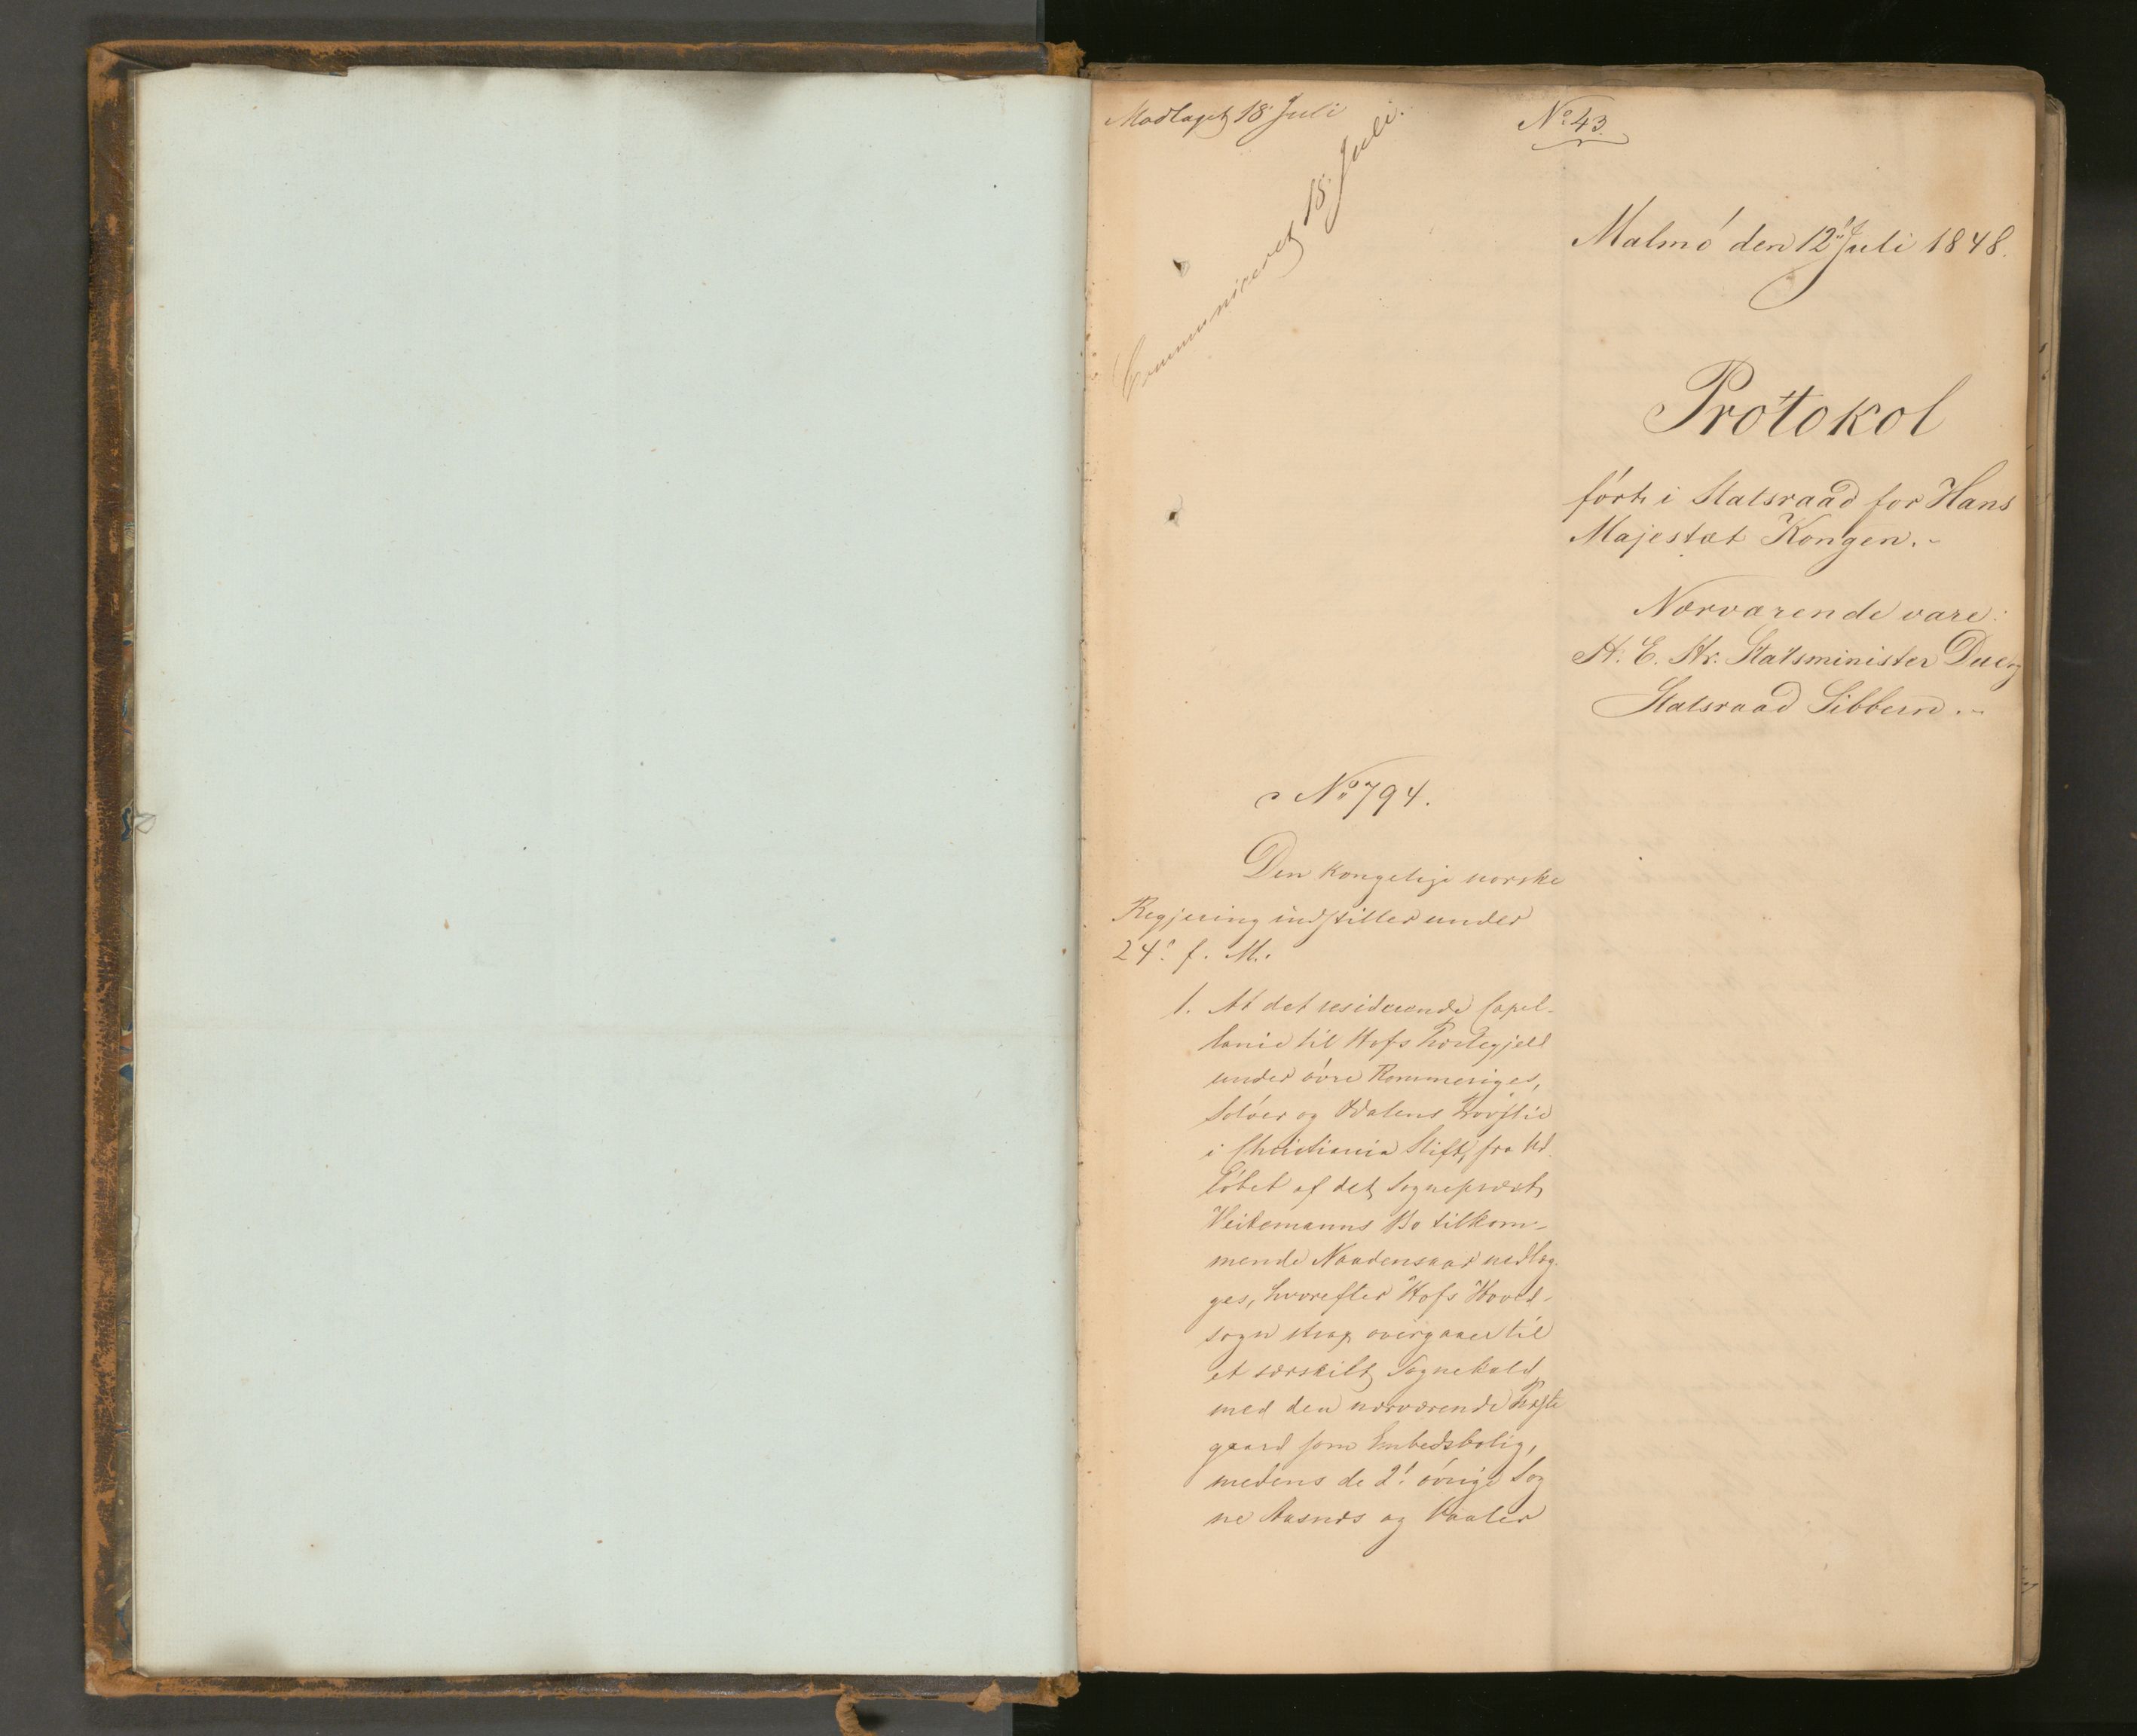 Modtaget 18 Juli
Communiceret 18 Juli.
No 43.
Malmö den 12te Juli 1848.
Protokol
ført i Statsraad for Hans
Majestæt Kongen.-
Nærværende vare:
H. E. Hr. Statsminister Due og
Statsraad Sibbern.-
No 794.
Den kongelige norske
Regjering indstiller under
24de f. M.:
1. At det residerende Capel-
lanie til Hofs Præstegjeld
under øvre Rommeriges,
Soløer og Odalens Provstie
i Christiania Stift, fra Ud-
løbet af det Sognepræst
Veitemanns Bo tilkom-
mende Naadensaar nedlæg-
ges, hvorefter Hofs Hoved-
sogn strax overgaaer til
et særskilt Sognekald
med den nærværende Præste
gaard som Embedsbolig,
medens de 2de øvrige Sog
ne Aasnæs og Vaaler